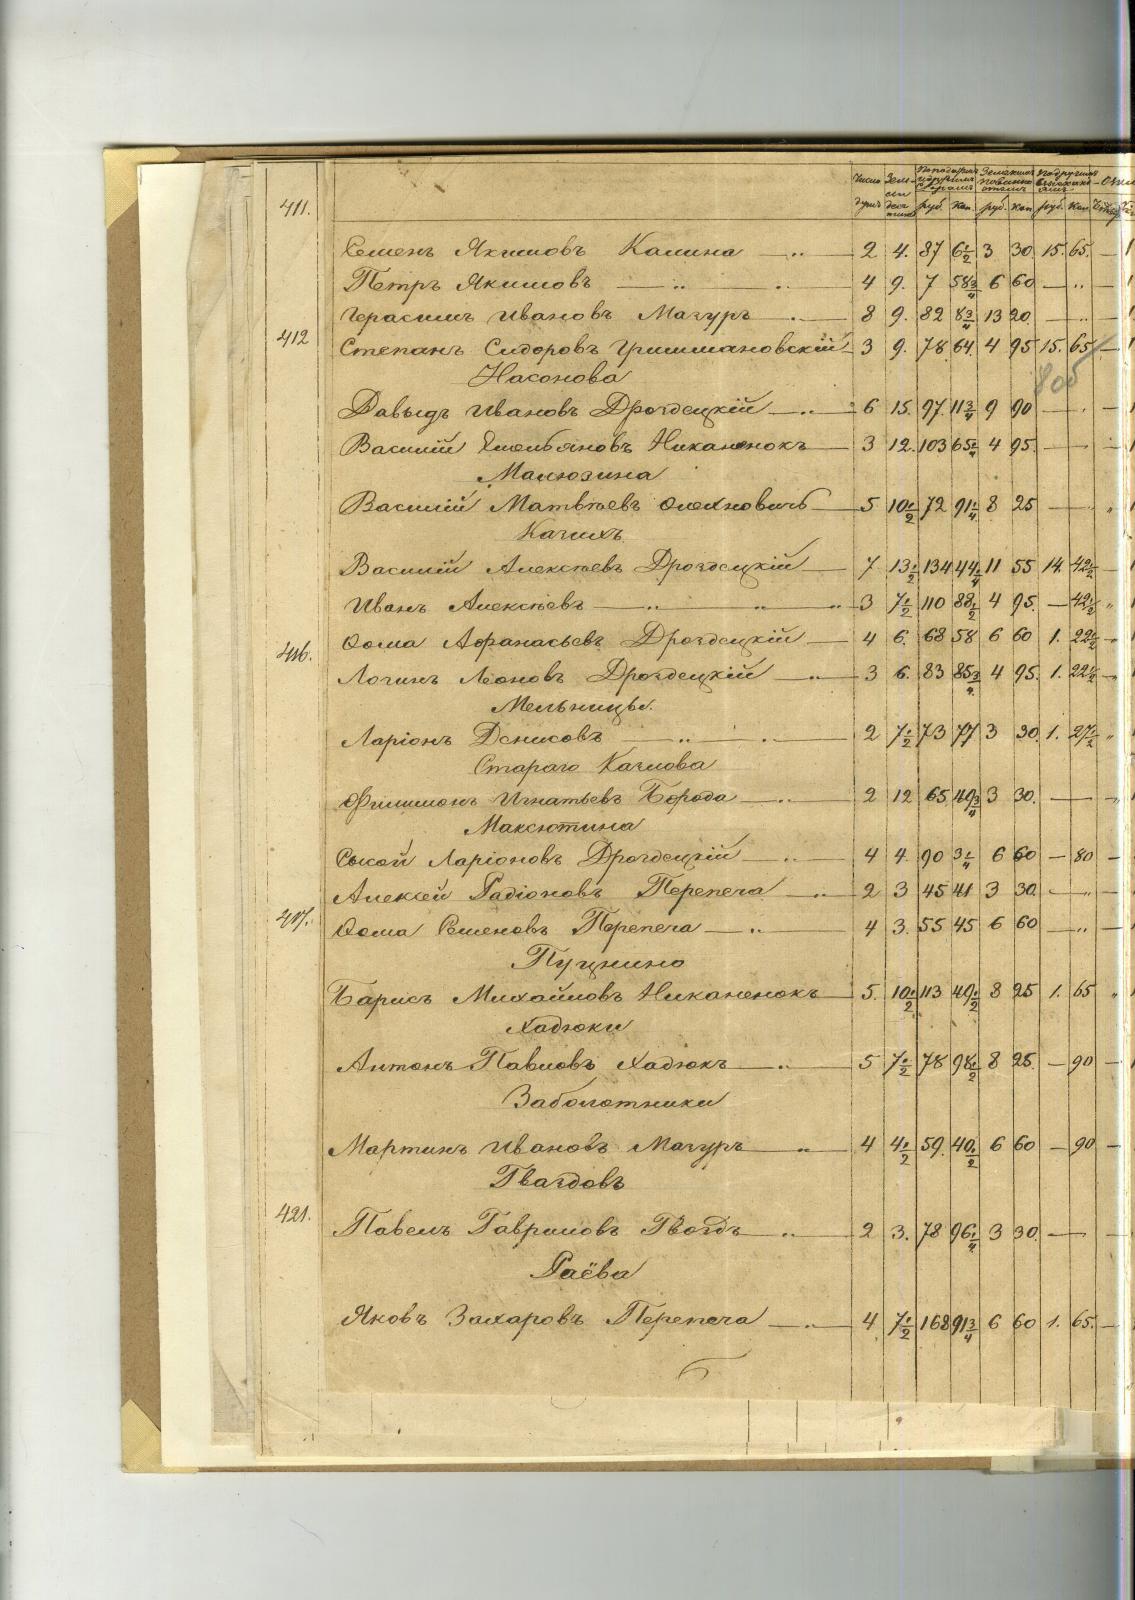 Число душъ Земли десятинъ руб. коп. руб. коп. руб. коп.
411.
Семенъ Якимовъ Калина — „ — 2 4. 87 6½ 3 30 15. 65. —
Петръ Якимовъ — „ — „ 4 9. 7 58¾ 6 60 — „ —
Герасимъ Ивановъ Мазуръ — 8 9. 82 8¾ 13 20. — „ —
412
Степанъ Сидоровъ Гришмановскій 3 9. 78 64. 4 95 15. 65 —
Насонова
80б
Давыдъ Ивановъ Дроздецкій — „ — 6 15. 97. 11¾ 9 90 — —
Василій Емельяновъ Никаненокъ 3 12. 103 65¼ 4 95. —
Малюзина
Василій Матвѣевъ Олехновичъ 5 10½ 72 91¼ 8 25 — „
Качихъ
Василій Алексѣевъ Дроздецкій — 7 13½ 134 44¼ 11 55 14. 42½ —
Иванъ Алексѣевъ — „ — „ — „ 3 7½ 110 88½ 4 95. — 42½ „
Ѳома Аѳанасьевъ Дроздецкій — 4 6. 68 58 6 60 1. 22½ „
416.
Логинъ Леоновъ Дроздецкій — „ — 3 6. 83 85¾ 4 95. 1. 22½ —
Мельницы.
Ларіонъ Денисовъ — „ — 2 7½ 73 77 3 30. 1. 27½ „
Стараго Качлова
Филимонъ Игнатьевъ Борода — „ — 2 12 65 40¾ 3 30. — „
Максютина
Сысой Ларіоновъ Дроздецкій — „ — 4 4. 90 3¼ 6 60 — 80 —
Алексѣй Радіоновъ Перепеча — „ 2 3 45 41 3 30. — —
417.
Ѳома Семеновъ Перепеча — „ — 4 3. 55 45 6 60 — „ —
Пуцнино
Барисъ Михайловъ Никаненокъ 5. 10½ 113 49½ 8 25 1. 65 „
Хадюки
Антонъ Павловъ Хадюкъ — „ — 5 7½ 78 98½ 8 25. — 90 —
Заболотники
Мартинъ Ивановъ Мазуръ — „ — 4 4½ 59. 40½ 6 60 — 90 —
Гвоздовъ
421.
Павелъ Гавриловъ Гвоздъ — „ — 2 3. 78 96¼ 3 30. — —
Раёва
Яковъ Захаровъ Перепеча — „ — 4 7½ 168 91¾ 6 60 1. 65. —